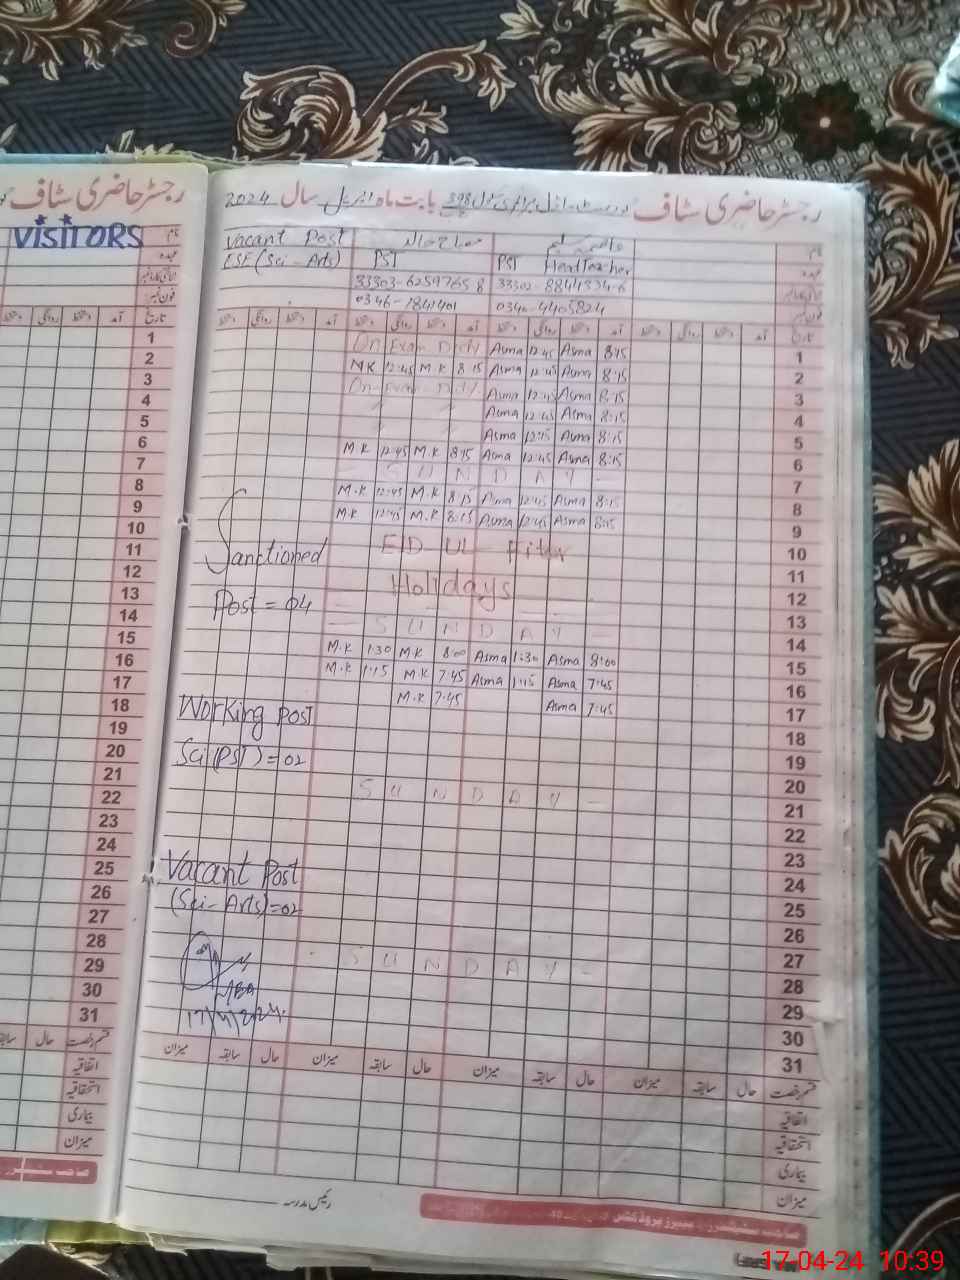 رجسٹر حاضری سٹاف
VISITORS
رجسٹر حاضری سٹاف
بابت ماہ اپریل سال 2024
نام
Vacant Post
عہدہ
ESE (Sci - Arts)
PST
PST Head Teacher
شناختی کارڈ نمبر
فون نمبر
0346-1841401
0340-4405824
تاریخ آمد دستخط روانگی دستخط آمد دستخط روانگی دستخط آمد دستخط روانگی دستخط آمد دستخط روانگی دستخط
1 On Exam Duty Asma 12:45 Asma 8:15
2 M.K 12:45 M.K 8:15 Asma 12:45 Asma 8:15
3 On Exam Duty Asma 12:45 Asma 8:15
4 Asma 12:45 Asma 8:15
5 Asma 12:15 Asma 8:15
6 M.K 12:45 M.K 8:15 Asma 12:45 Asma 8:15
7 SUNDAY
8 M.K 12:45 M.K 8:15 Asma 12:45 Asma 8:15
9 M.K 12:45 M.K 8:15 Asma 12:45 Asma 8:15
10 EID UL Fitr
11 Sanctioned
12 Holidays
Post = 04
13
14 SUNDAY
15 M.K 1:30 M.K 8:00 Asma 1:30 Asma 8:00
16 M.K 1:15 M.K 7:45 Asma 1:15 Asma 7:45
17 M.K 7:45 Asma 7:45
Working Post
18
19
Sci (PST) = 02
20
21 SUNDAY
22
23
24
Vacant Post
25
(Sci - Arts) = 02
26
27
28 SUNDAY
29
30
17/4/2024
31
قسم رخصت حال سابقہ میزان حال سابقہ میزان حال سابقہ میزان حال سابقہ میزان
اتفاقیہ
استحقاقیہ
بیماری
میزان
رئیس مدرسہ
17-04-24 10:39